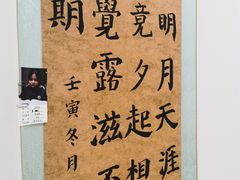 明月天涯
竟夕起相
覺露滋不
期
壬寅冬月